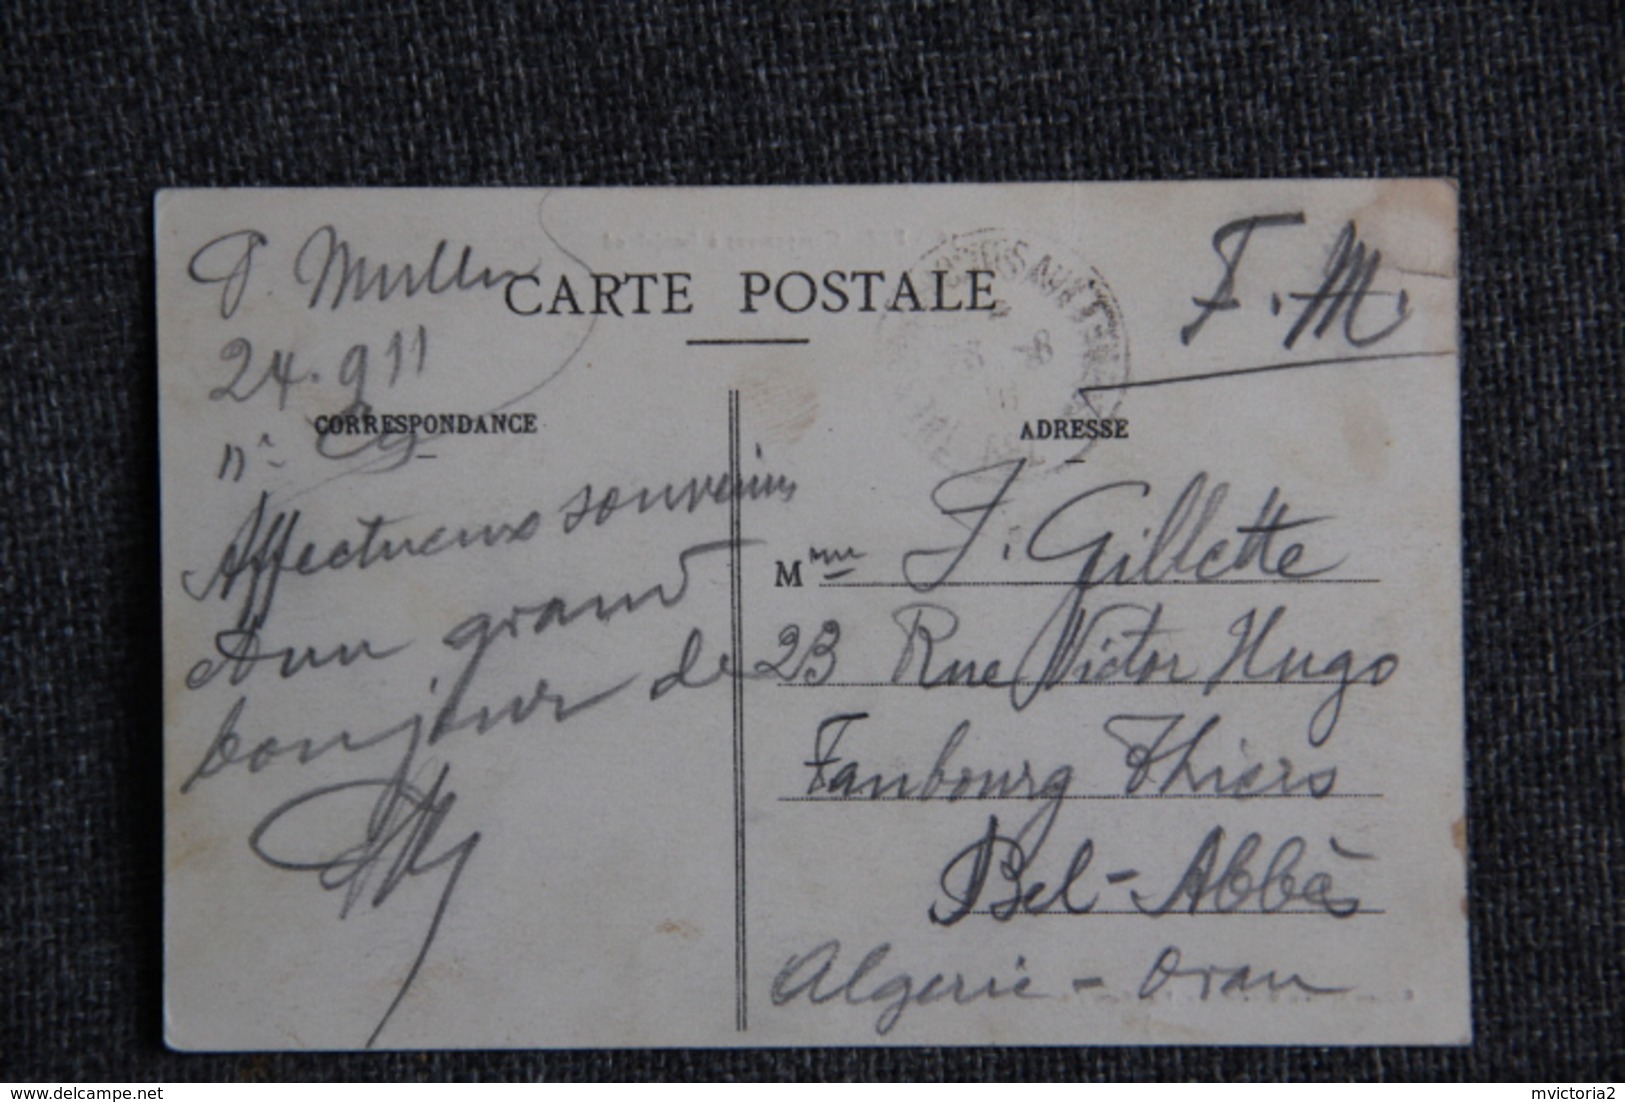 P. Muller
24.911
n° 69
CARTE POSTALE
F.M.
CORRESPONDANCE
Affectueux souvenirs
d'un grand
bonjour de
ADRESSE
Mme J. Gillette
23 Rue Victor Hugo
Faubourg Thiers
Bel-Abbès
Algerie - Oran
delcampe.net
mvictoria2